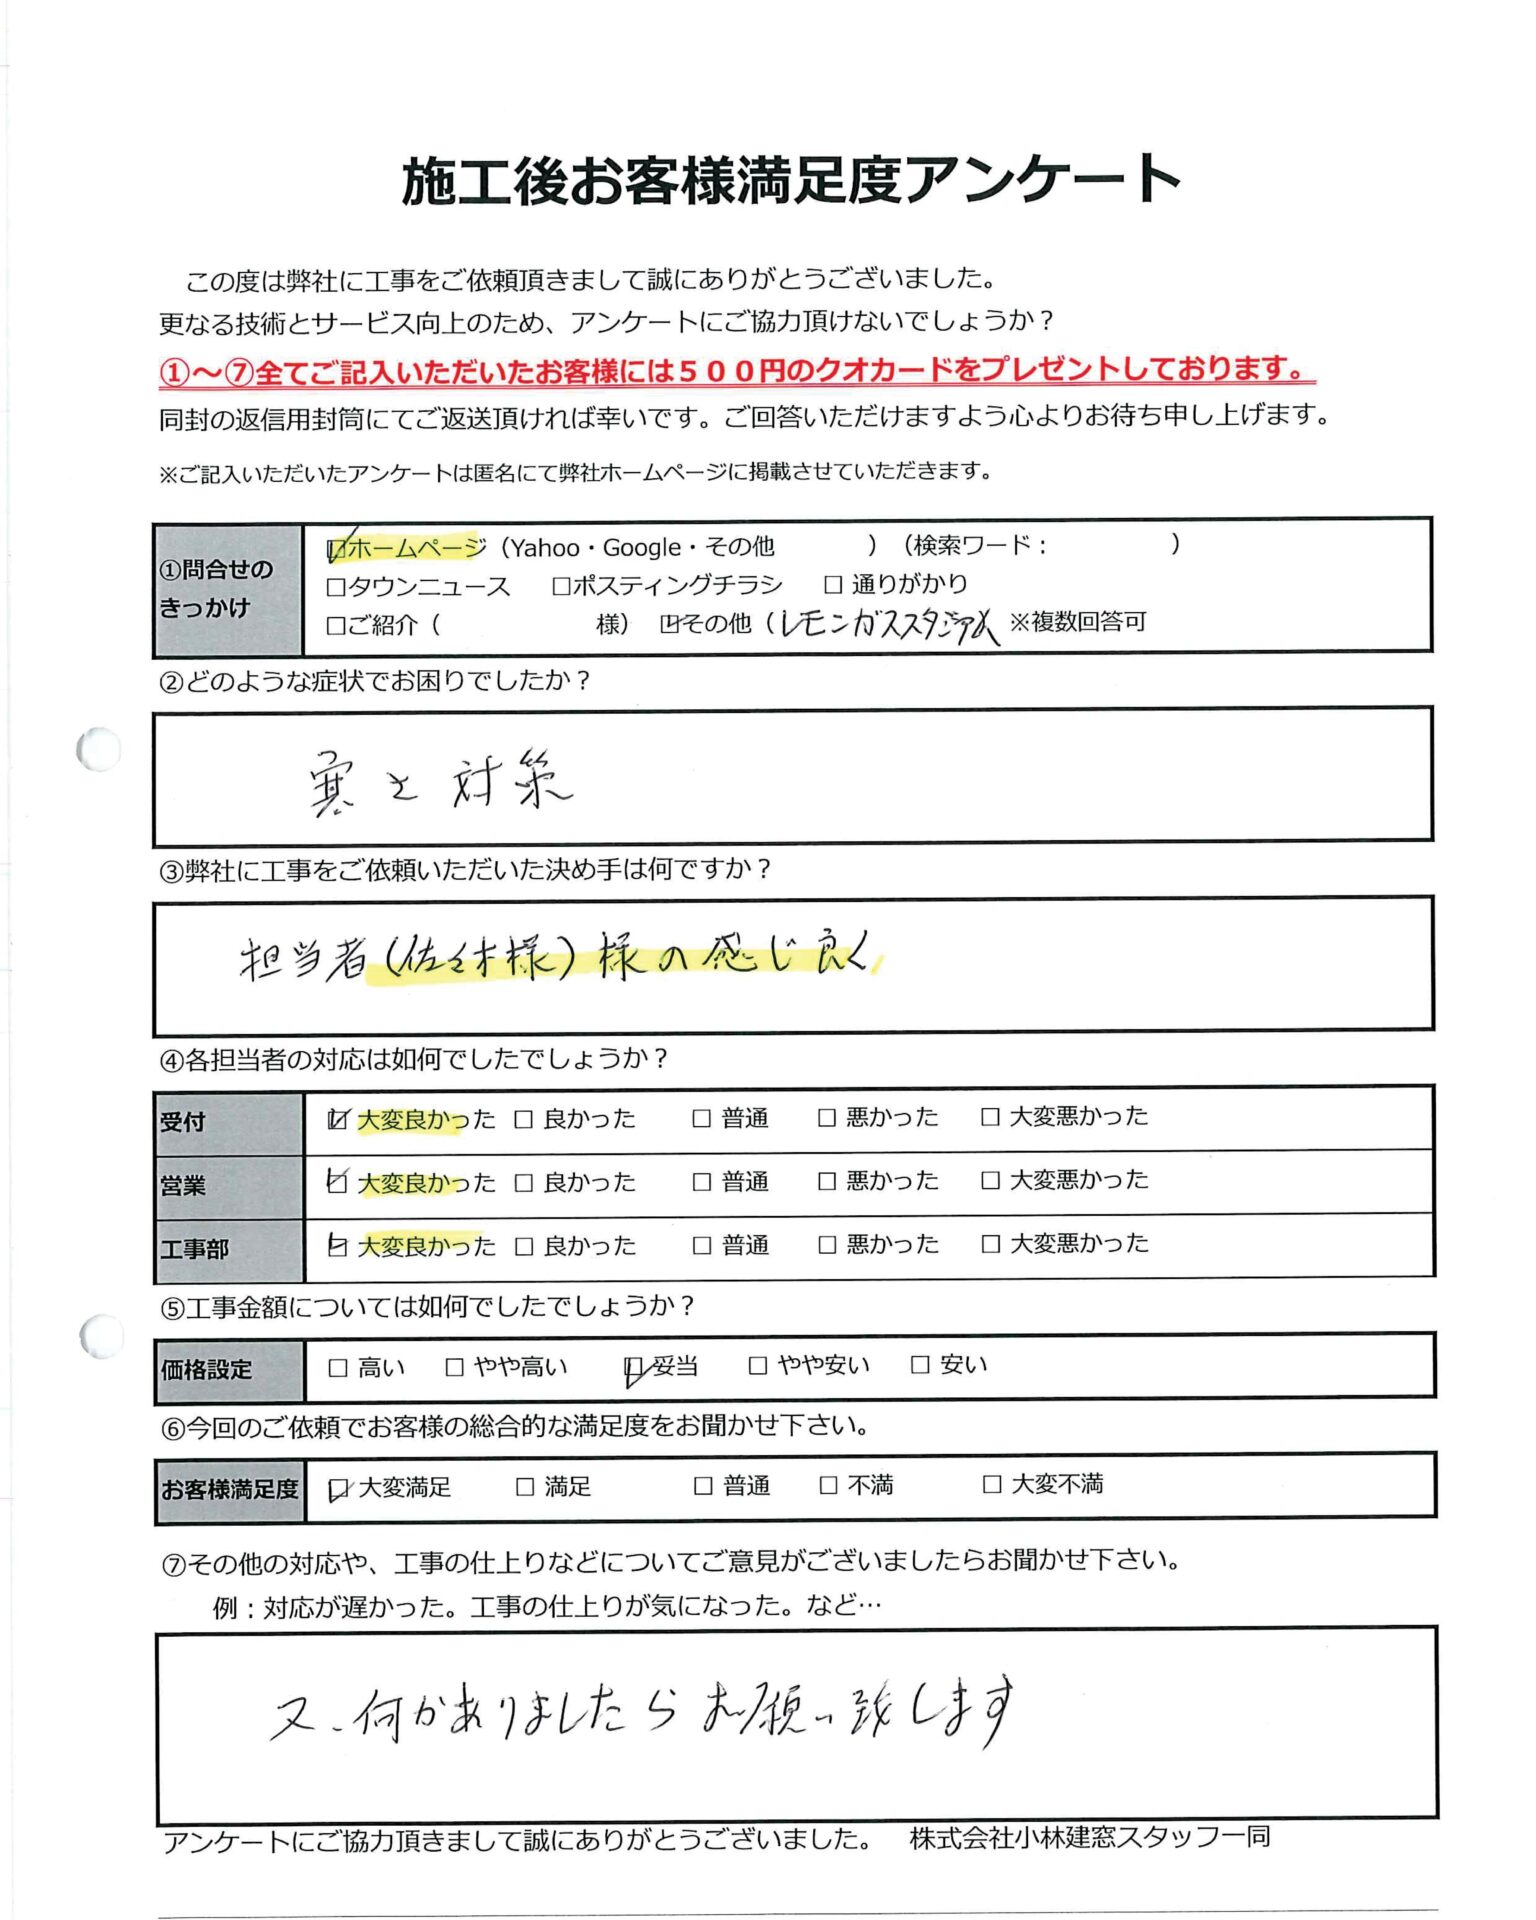 施工後お客様満足度アンケート
この度は弊社に工事をご依頼頂きまして誠にありがとうございました。
更なる技術とサービス向上のため、アンケートにご協力頂けないでしょうか？
①～⑦全てご記入いただいたお客様には５００円のクオカードをプレゼントしております。
同封の返信用封筒にてご返送頂ければ幸いです。ご回答いただけますよう心よりお待ち申し上げます。
※ご記入いただいたアンケートは匿名にて弊社ホームページに掲載させていただきます。
①問合せのきっかけ
☑ホームページ（Yahoo・Google・その他　　　　）（検索ワード：　　　　　）
□タウンニュース　□ポスティングチラシ　□ 通りがかり
□ご紹介（　　　　　　様）　☑その他（レモンガススタジアム ※複数回答可
②どのような症状でお困りでしたか？
寒さ対策
③弊社に工事をご依頼いただいた決め手は何ですか？
担当者（佐々木様）様の感じ良く
④各担当者の対応は如何でしたでしょうか？
受付 ☑ 大変良かった □ 良かった □ 普通 □ 悪かった □ 大変悪かった
営業 ☑ 大変良かった □ 良かった □ 普通 □ 悪かった □ 大変悪かった
工事部 ☑ 大変良かった □ 良かった □ 普通 □ 悪かった □ 大変悪かった
⑤工事金額については如何でしたでしょうか？
価格設定 □ 高い □ やや高い ☑ 妥当 □ やや安い □ 安い
⑥今回のご依頼でお客様の総合的な満足度をお聞かせ下さい。
お客様満足度 ☑ 大変満足 □ 満足 □ 普通 □ 不満 □ 大変不満
⑦その他の対応や、工事の仕上りなどについてご意見がございましたらお聞かせ下さい。
例：対応が遅かった。工事の仕上りが気になった。など…
又、何かありましたらお願い致します
アンケートにご協力頂きまして誠にありがとうございました。　株式会社小林建窓スタッフ一同